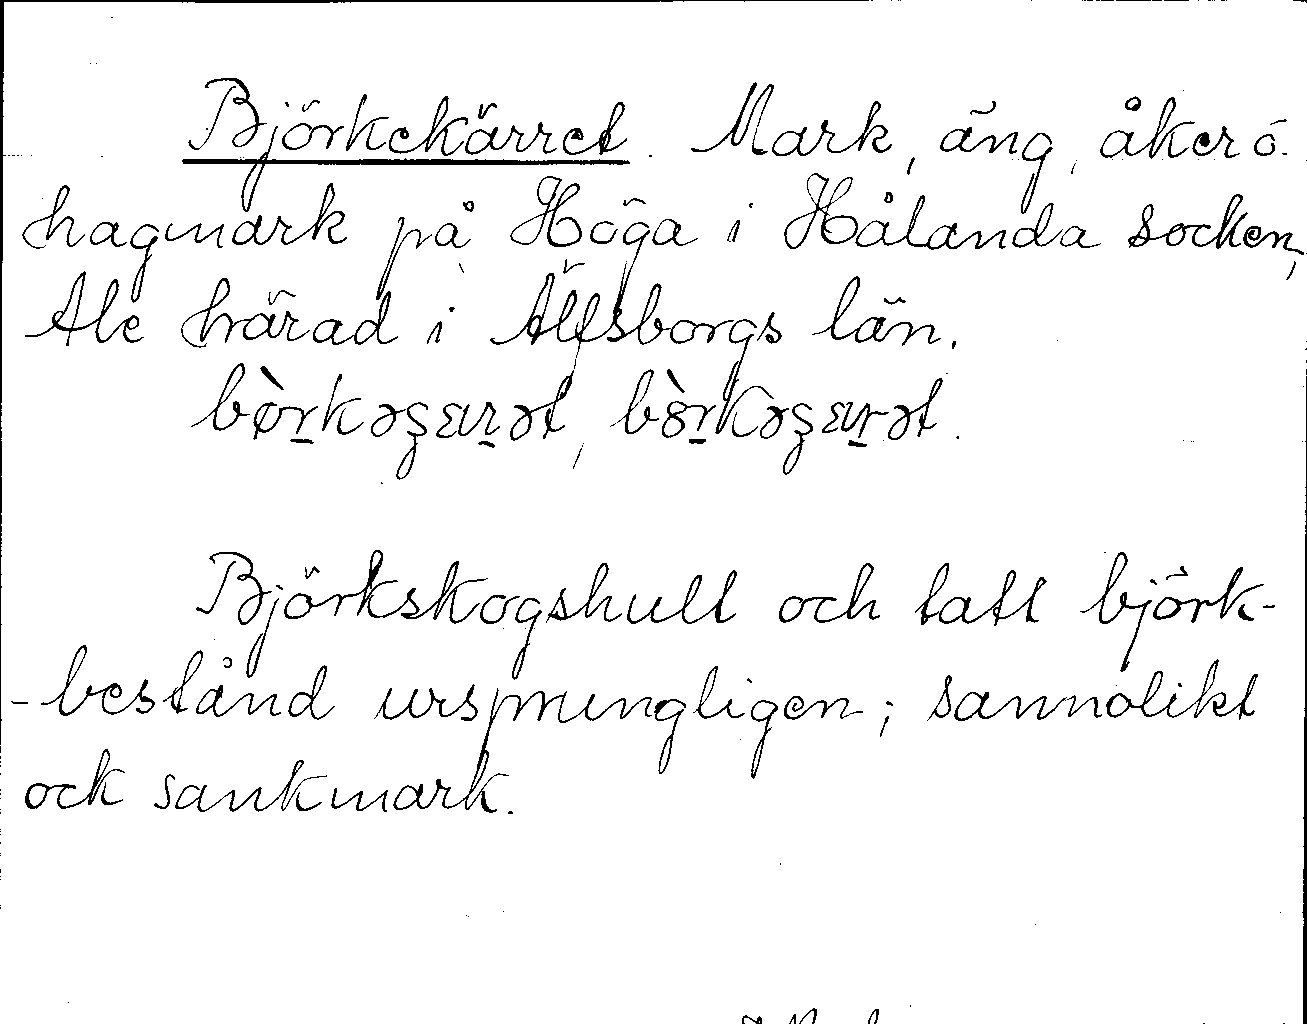 Björkekärret. Mark, äng, åker o.
hagmark på Höga i Hålanda socken,
Ale härad i Älfsborgs län.
Björkskogshult och tätt björk-
-bestånd ursprungligen; sannolikt
ock sankmark.